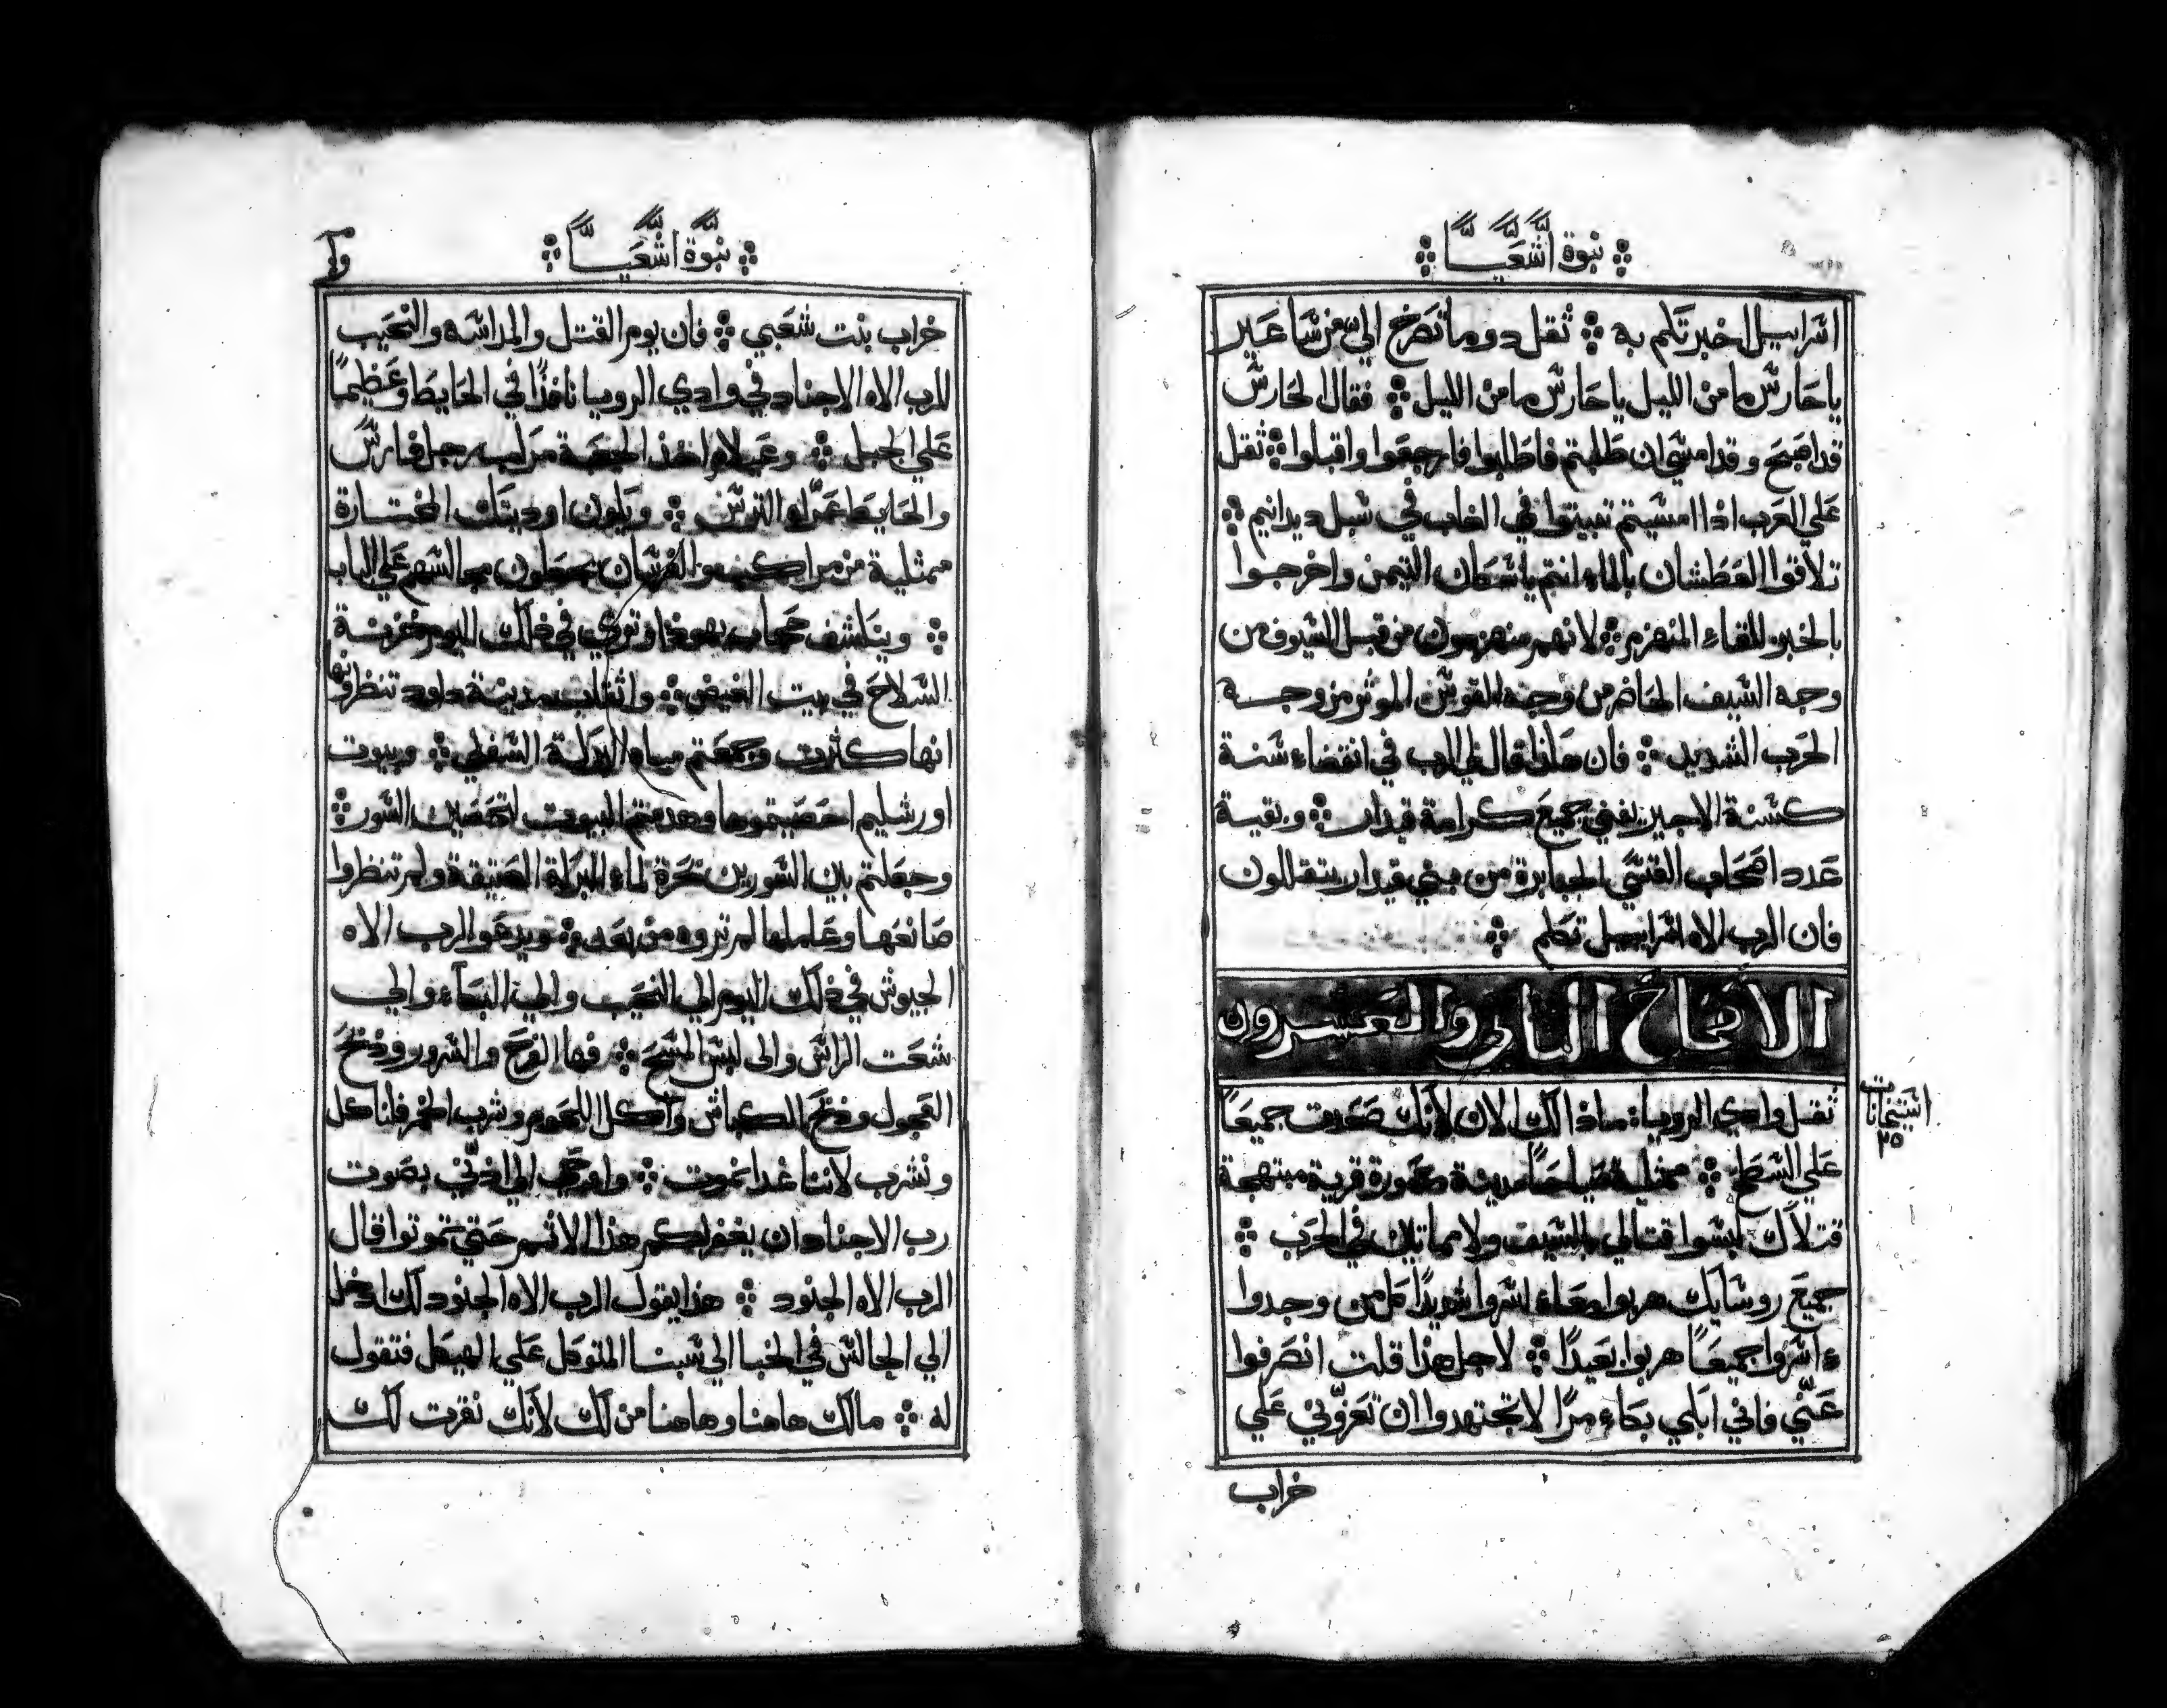 نبوة اشعيا
اسراييل اخبرتكم به ثقل دوما تصرخ الي من ساعير
يا حارس ما من الليل يا حارس ما من الليل فقال الحارس
قد اصبح وقد امسي ان طلبتم فاطلبوا فارجعوا واقبلوا ثقل
علي العرب اذا امسيتم تبيتوا في الغاب في سبل ديدانيم
تلاقوا العطشان بالماء انتم يا سكان التيمن واخرجوا
بالخبز للقاء المنهزم لانهم منهزمون من قبل السيوف من
وجه السيف الحاضر من وجه القوس الموثر من وجه
الحرب الشديد فان هكذا قال لي الرب في انقضاء سنة
كسنة الاجير يفني جميع كرامة قيدار وبقية
عدد اصحاب القسي الجبابرة من بني قيدار يتقللون
فان الرب الاه اسراييل تكلم
الاصحاح الثاني والعشرون
ثقل وادي الرويا ماذا لك الان لانك صعدت جميعًا
علي السطح ممتلية صياحًا مدينة معمورة قرية مبتهجة
قتلاك ليسوا قتلي بالسيف ولا مماتين في الحرب
جميع روسايك هربوا معاء اسروا شديدًا كل من وجدوا
ء اسروا جميعًا هربوا بعيدًا لاجل هذا قلت انصرفوا
عني فاني ابكي بكاء مرًا لا تجتهدوا ان تعزوني علي
خراب
استيخانات
٢٥
نبوة اشعيا
خراب بنت شعبي فان يوم القتل والدراسة والنحيب
للرب الاه الاجناد في وادي الرويا نافذًا في الحايط وعظيمًا
علي الجبل وعيلام اخذ الجعبة مركب رجل فارس
والحايط عرّا الترس ويكون اوديتك المختارة
ممتلية من مراكب والفرسان يجعلون مجالسهم علي الباب
وينكشف حجاب يهوذا وتري في ذلك اليوم خزينة
السلاح في بيت الغيض واثقاب مدينة داود تنظرونها
انها كثرت وجمعتم مياه البركة السفلي وبيوت
اورشليم احصيتموها وهدمتم البيوت لتحصين السور
وجعلتم بين السورين حفرة لماء البركة العتيقة ولم تنظروا
صانعها وعاملها لم تروه من بعد ويدعو الرب الاه
الجيوش في ذلك اليوم الي النحيب والي البكاء والي
شعت الراس والي لبس المسح فها الفرح والسرور وذبح
العجول وذبح الكباش واكل اللحوم وشرب الخمر فلناكل
ونشرب لاننا غدا نموت واوحي الي اذني بصوت
رب الاجناد ان يغفر لكم هذا الاثم حتي تموتوا قال
الرب الاه الجنود هذا يقول الرب الاه الجنود لك ادخل
الي الجالس في الخبا الي شبنا المتوكل علي الهيكل فتقول
له مالك هاهنا وهاهنا من لك لانك نقرت لك